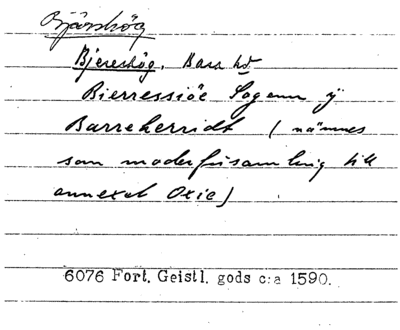 Bjärshög
Bjereshög, Bara hd
Bierressiöe Sogenn ÿ
Barreherridt (nämnes
som moderförsamling till
annexet Oxie)
6076 Fort. Geistl. gods c:a 1590.